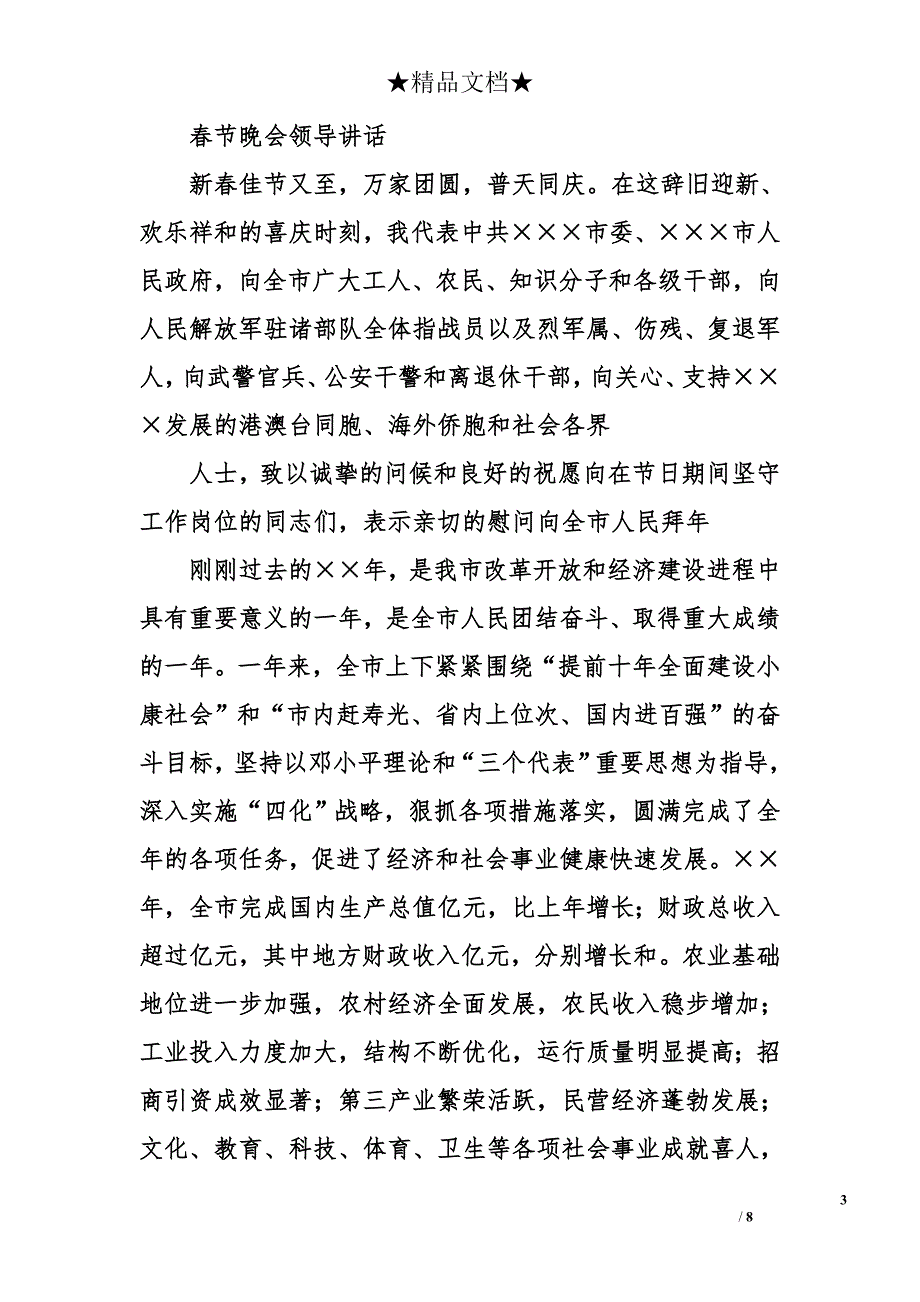 ★精品文档★
春节晚会领导讲话
新春佳节又至，万家团圆，普天同庆。在这辞旧迎新、
欢乐祥和的喜庆时刻，我代表中共×××市委、×××市人
民政府，向全市广大工人、农民、知识分子和各级干部，向
人民解放军驻诸部队全体指战员以及烈军属、伤残、复退军
人，向武警官兵、公安干警和离退休干部，向关心、支持××
×发展的港澳台同胞、海外侨胞和社会各界
人士，致以诚挚的问候和良好的祝愿向在节日期间坚守
工作岗位的同志们，表示亲切的慰问向全市人民拜年
刚刚过去的××年，是我市改革开放和经济建设进程中
具有重要意义的一年，是全市人民团结奋斗、取得重大成绩
的一年。一年来，全市上下紧紧围绕“提前十年全面建设小
康社会”和“市内赶寿光、省内上位次、国内进百强”的奋
斗目标，坚持以邓小平理论和“三个代表”重要思想为指导，
深入实施“四化”战略，狠抓各项措施落实，圆满完成了全
年的各项任务，促进了经济和社会事业健康快速发展。××
年，全市完成国内生产总值亿元，比上年增长；财政总收入
超过亿元，其中地方财政收入亿元，分别增长和。农业基础
地位进一步加强，农村经济全面发展，农民收入稳步增加；
工业投入力度加大，结构不断优化，运行质量明显提高；招
商引资成效显著；第三产业繁荣活跃，民营经济蓬勃发展；
文化、教育、科技、体育、卫生等各项社会事业成就喜人，
3
/ 8